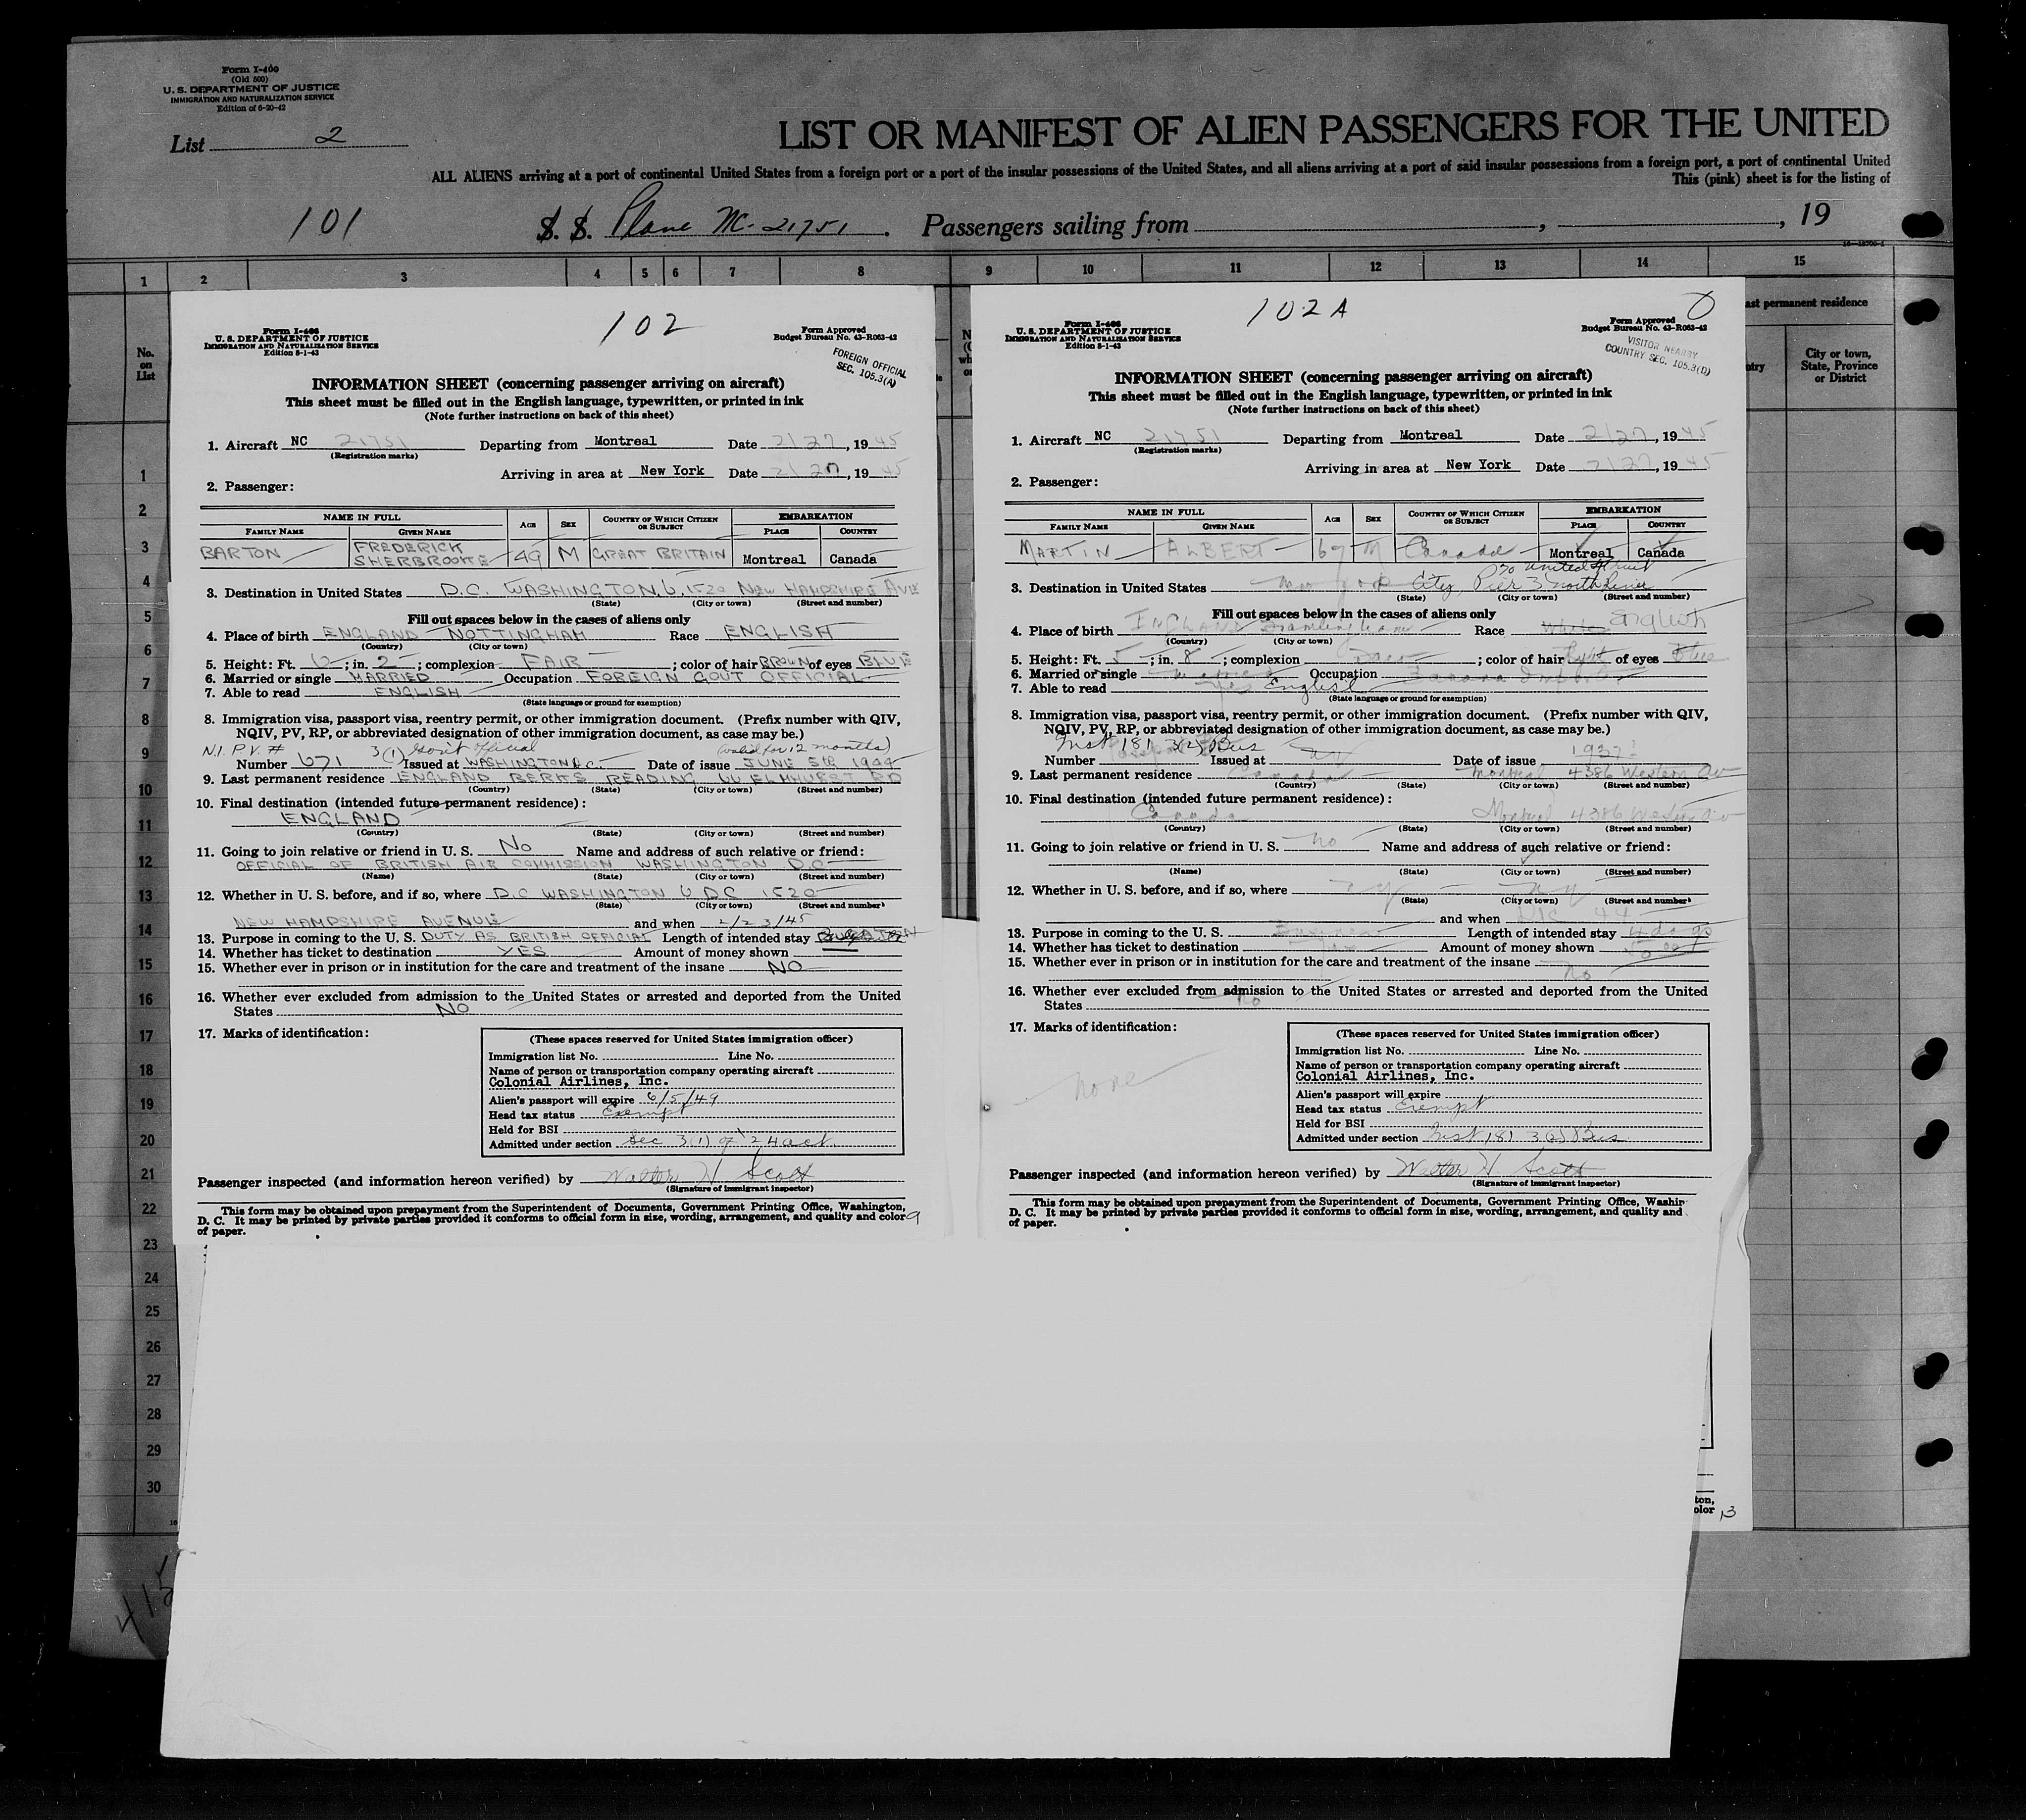 Form I-400
(Old 500)
U. S. DEPARTMENT OF JUSTICE
IMMIGRATION AND NATURALIZATION SERVICE
Edition of 6-20-42
List 2
LIST OR MANIFEST OF ALIEN PASSENGERS FOR THE UNITED
ALL ALIENS arriving at a port of continental United States from a foreign port or a port of the insular possessions of the United States, and all aliens arriving at a port of said insular possessions from a foreign port, a port of continental United
This (pink) sheet is for the listing of
101 S. S. Plane NC-21751. Passengers sailing from , , 19
1 2 3 4 5 6 7 8 9 10 11 12 13 14 15
No. on List
ast permanent residence
City or town, State, Province or District
102
Form I-466
U. S. DEPARTMENT OF JUSTICE
IMMIGRATION AND NATURALIZATION SERVICE
Edition 8-1-43
Form Approved
Budget Bureau No. 43-R063-42
FOREIGN OFFICIAL
SEC. 105.3(A)
INFORMATION SHEET (concerning passenger arriving on aircraft)
This sheet must be filled out in the English language, typewritten, or printed in ink
(Note further instructions on back of this sheet)
1. Aircraft NC 21751 Departing from Montreal Date 2/27, 1945
(Registration marks)
Arriving in area at New York Date 2/27, 1945
2. Passenger:
NAME IN FULL AGE SEX COUNTRY OF WHICH CITIZEN OR SUBJECT EMBARKATION
FAMILY NAME GIVEN NAME PLACE COUNTRY
BARTON FREDERICK SHERBROOKE 49 M GREAT BRITAIN Montreal Canada
3. Destination in United States D.C. WASHINGTON, 6. 1520 NEW HAMPSHIRE AVE
(State) (City or town) (Street and number)
Fill out spaces below in the cases of aliens only
4. Place of birth ENGLAND NOTTINGHAM Race ENGLISH
(Country) (City or town)
5. Height: Ft. 6; in. 2; complexion FAIR; color of hair BROWN of eyes BLUE
6. Married or single MARRIED Occupation FOREIGN GOVT OFFICIAL
7. Able to read ENGLISH
(State language or ground for exemption)
8. Immigration visa, passport visa, reentry permit, or other immigration document. (Prefix number with QIV,
NQIV, PV, RP, or abbreviated designation of other immigration document, as case may be.)
N.I. P.V. # 3(1) Gov't official (valid for 12 months)
Number 671 Issued at WASHINGTON D.C. Date of issue JUNE 5th 1944
9. Last permanent residence ENGLAND BERKS READING 60 ELMHURST RD
(Country) (State) (City or town) (Street and number)
10. Final destination (intended future permanent residence):
ENGLAND
(Country) (State) (City or town) (Street and number)
11. Going to join relative or friend in U. S. No Name and address of such relative or friend:
OFFICIAL OF BRITISH AIR COMMISSION WASHINGTON D.C.
(Name) (State) (City or town) (Street and number)
12. Whether in U. S. before, and if so, where D.C WASHINGTON 6 D.C 1520
(State) (City or town) (Street and number)
NEW HAMPSHIRE AVENUE and when 2/23/45
13. Purpose in coming to the U. S. DUTY AS BRITISH OFFICIAL Length of intended stay
14. Whether has ticket to destination YES Amount of money shown
15. Whether ever in prison or in institution for the care and treatment of the insane NO
16. Whether ever excluded from admission to the United States or arrested and deported from the United
States NO
17. Marks of identification:
(These spaces reserved for United States immigration officer)
Immigration list No. Line No.
Name of person or transportation company operating aircraft
Colonial Airlines, Inc.
Alien's passport will expire 6/5/49
Head tax status Exempt
Held for BSI
Admitted under section Sec 3(1) of '24 act
Passenger inspected (and information hereon verified) by Walter H Scott
(Signature of immigrant inspector)
This form may be obtained upon prepayment from the Superintendent of Documents, Government Printing Office, Washington,
D. C. It may be printed by private parties provided it conforms to official form in size, wording, arrangement, and quality and color
of paper.
9
102 A
Form I-466
U. S. DEPARTMENT OF JUSTICE
IMMIGRATION AND NATURALIZATION SERVICE
Edition 8-1-43
Form Approved
Budget Bureau No. 43-R063-42
VISITOR NEARBY
COUNTRY SEC. 105.3(D)
INFORMATION SHEET (concerning passenger arriving on aircraft)
This sheet must be filled out in the English language, typewritten, or printed in ink
(Note further instructions on back of this sheet)
1. Aircraft NC 21751 Departing from Montreal Date 2/27, 1945
(Registration marks)
Arriving in area at New York Date 2/27, 1945
2. Passenger:
NAME IN FULL AGE SEX COUNTRY OF WHICH CITIZEN OR SUBJECT EMBARKATION
FAMILY NAME GIVEN NAME PLACE COUNTRY
MARTIN ALBERT 67 M Canada Montreal Canada
% United Fruit
3. Destination in United States New York City, Pier 3 North River
(State) (City or town) (Street and number)
Fill out spaces below in the cases of aliens only
4. Place of birth ENGLAND Race White English
(Country) (City or town)
5. Height: Ft. 5; in. 8; complexion; color of hair light of eyes Blue
6. Married or single Married Occupation Banana
7. Able to read Yes English
(State language or ground for exemption)
8. Immigration visa, passport visa, reentry permit, or other immigration document. (Prefix number with QIV,
NQIV, PV, RP, or abbreviated designation of other immigration document, as case may be.)
Inst 181 3(2) Bus
Number Issued at Date of issue 1937?
9. Last permanent residence Canada Montreal 4386 Western Av
(Country) (State) (City or town) (Street and number)
10. Final destination (intended future permanent residence):
Canada Montreal 4386 Western Av
(Country) (State) (City or town) (Street and number)
11. Going to join relative or friend in U. S. No Name and address of such relative or friend:
(Name) (State) (City or town) (Street and number)
12. Whether in U. S. before, and if so, where NY NY
(State) (City or town) (Street and number)
and when Dec 44
13. Purpose in coming to the U. S. Business Length of intended stay 4 days
14. Whether has ticket to destination Yes Amount of money shown
15. Whether ever in prison or in institution for the care and treatment of the insane No
16. Whether ever excluded from admission to the United States or arrested and deported from the United
States No
17. Marks of identification:
none
(These spaces reserved for United States immigration officer)
Immigration list No. Line No.
Name of person or transportation company operating aircraft
Colonial Airlines, Inc.
Alien's passport will expire
Head tax status Exempt
Held for BSI
Admitted under section Inst 181 3(2) Bus
Passenger inspected (and information hereon verified) by Walter H Scott
(Signature of immigrant inspector)
This form may be obtained upon prepayment from the Superintendent of Documents, Government Printing Office, Washin
D. C. It may be printed by private parties provided it conforms to official form in size, wording, arrangement, and quality and
of paper.
1
2
3
4
5
6
7
8
9
10
11
12
13
14
15
16
17
18
19
20
21
22
23
24
25
26
27
28
29
30
ton,
olor 13
415